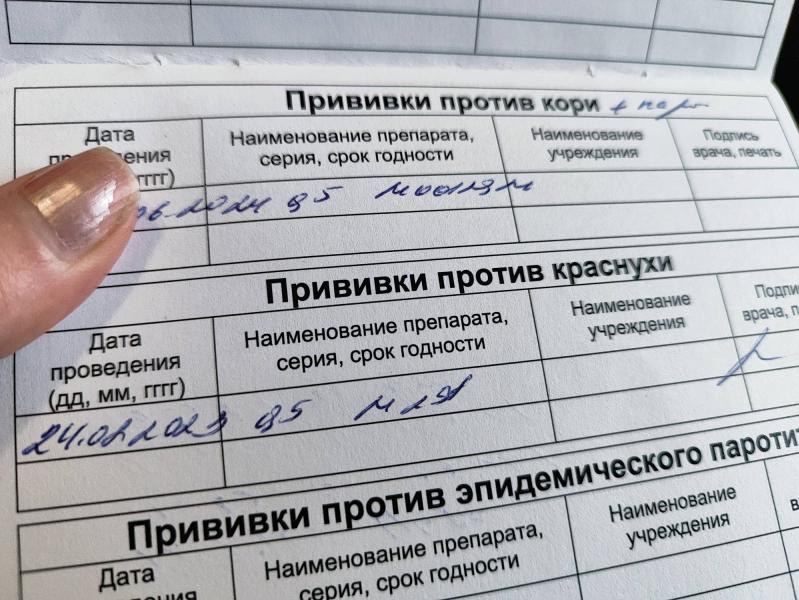 Прививки против кори + пар
Дата проведения гггг)
Наименование препарата, серия, срок годности
Наименование учреждения
Подпись врача, печать
06.2024 0,5
Прививки против краснухи
Дата проведения (дд, мм, гггг)
Наименование препарата, серия, срок годности
Наименование учреждения
Подпи врача, п
24.02.2023 0,5
Прививки против эпидемического пароти
Дата
Наименование препарата, серия, срок годности
Наименование учреждения